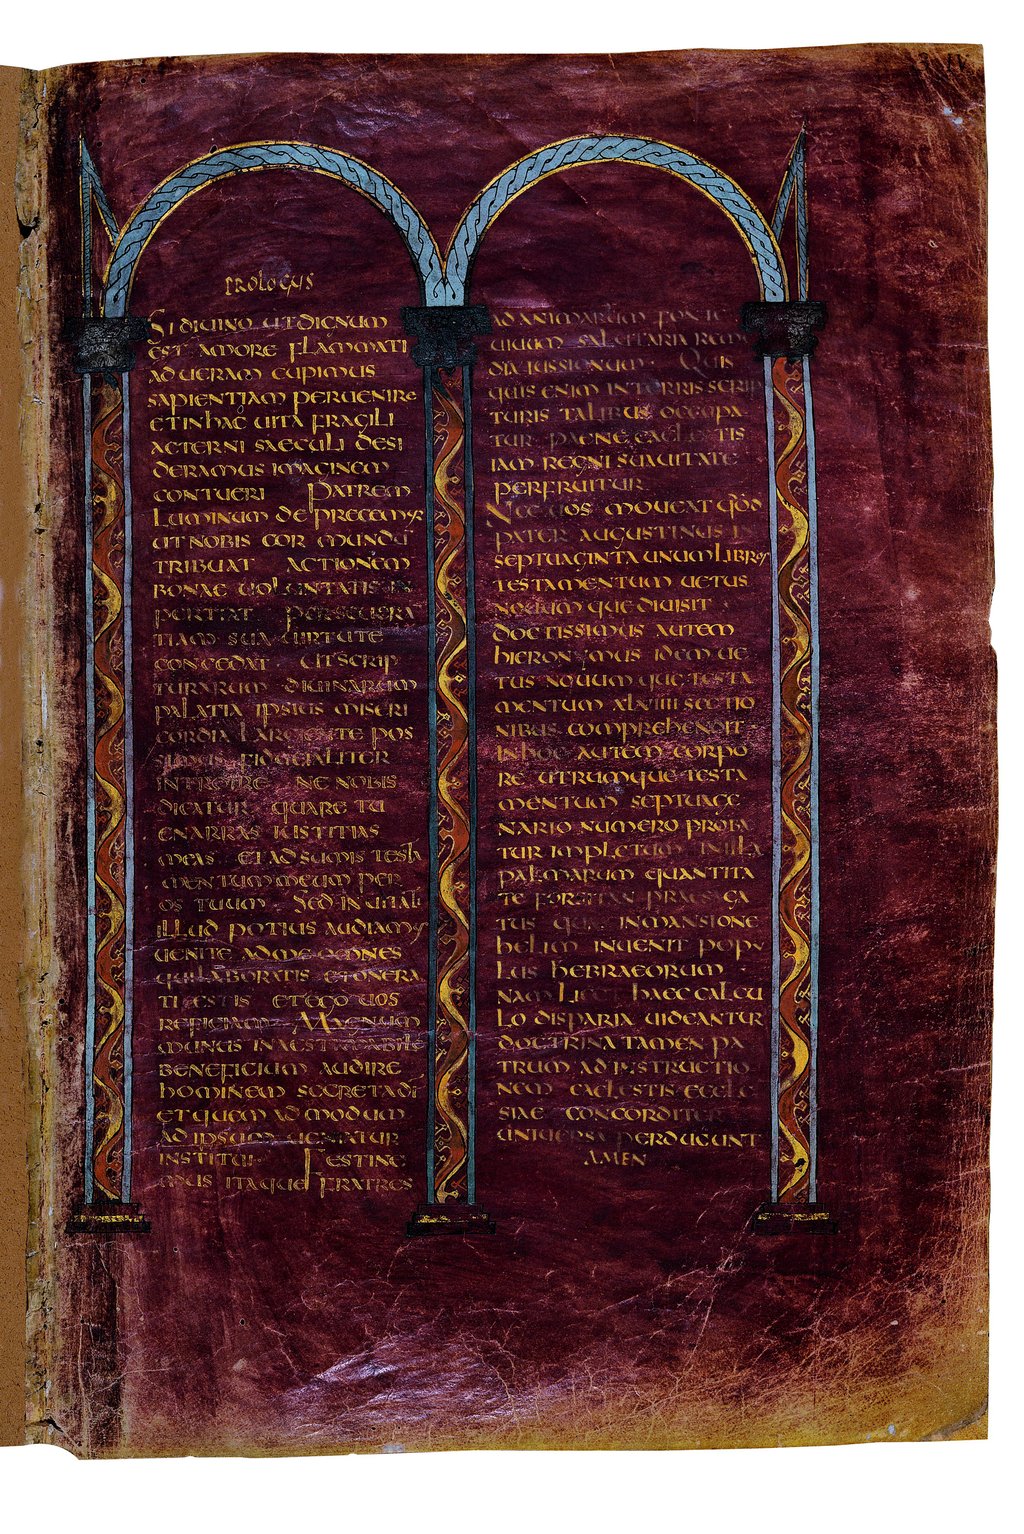 PROLOGUS
SI DIVINO UT DIGNUM
EST AMORE FLAMMATI
AD UERAM CUPIMUS
SAPIENTIAM PERUENIRE
ET IN HAC UITA FRAGILI
AETERNI SAECULI DESI
DERAMUS IMAGINEM
CONTUERI PATREM
LUMINUM DEPRECEMUR
UT NOBIS COR MUNDU
TRIBUAT ACTIONEM
BONAE UOLUNTATIS IN
PERTIAT PERSEUERA
TIAM SUA UIRTUTE
CONCEDAT UT SCRIP
TURARUM DIUINARUM
PALATIA IPSIUS MISERI
CORDIA LARGIENTE POS
SIMUS FIDUCIALITER
INTROIRE NE NOBIS
DICATUR QUARE TU
ENARRAS IUSTITIAS
MEAS ET ADSUMIS TESTA
MENTUM MEUM PER
OS TUUM SED INUITATI
ILLUD POTIUS AUDIAMUS
UENITE AD ME OMNES
QUI LABORATIS ET ONERA
TI ESTIS ET EGO UOS
REFICIAM MAGNUM
MUNUS INAESTIMABILE
BENEFICIUM AUDIRE
HOMINEM SECRETA DI
ET QUEM AD MODUM
AD IPSUM UENIATUR
INSTITUI FESTINE
MUS ITAQUE FRATRES
AD ANIMARUM FONTE
UIUUM SALUTARIA REME
DIA IUSSIONUM QUIS
QUIS ENIM IN TERRIS SCRIP
TURIS TALIBUS OCCUPA
TUR PAENE CAELESTIS
IAM REGNI SUAUITATE
PERFRUITUR
NEC UOS MOUEAT QUOD
PATER AUGUSTINUS IN
SEPTUAGINTA UNUM LIBROS
TESTAMENTUM UETUS
NOUUMQUE DIUISIT
DOCTISSIMUS AUTEM
HIERONYMUS IDEM UE
TUS NOUUMQUE TESTA
MENTUM XLVIIII SECTIO
NIBUS COMPREHENDIT
IN HOC AUTEM CORPO
RE UTRUMQUE TESTA
MENTUM SEPTUAGE
NARIO NUMERO PROBA
TUR IMPLETUM IN ILLA
PALMARUM QUANTITA
TE FORZITAN PRAESAGA
TUS QUAS IN MANSIONE
HELIM INUENIT POPU
LUS HEBRAEORUM
NAM LICET HAEC CALCU
LO DISPARIA UIDEANTUR
DOCTRINA TAMEN PA
TRUM AD INSTRUCTIO
NEM CAELESTIS ECCLE
SIAE CONCORDITER
UNIUERSA PERDUCUNT
AMEN